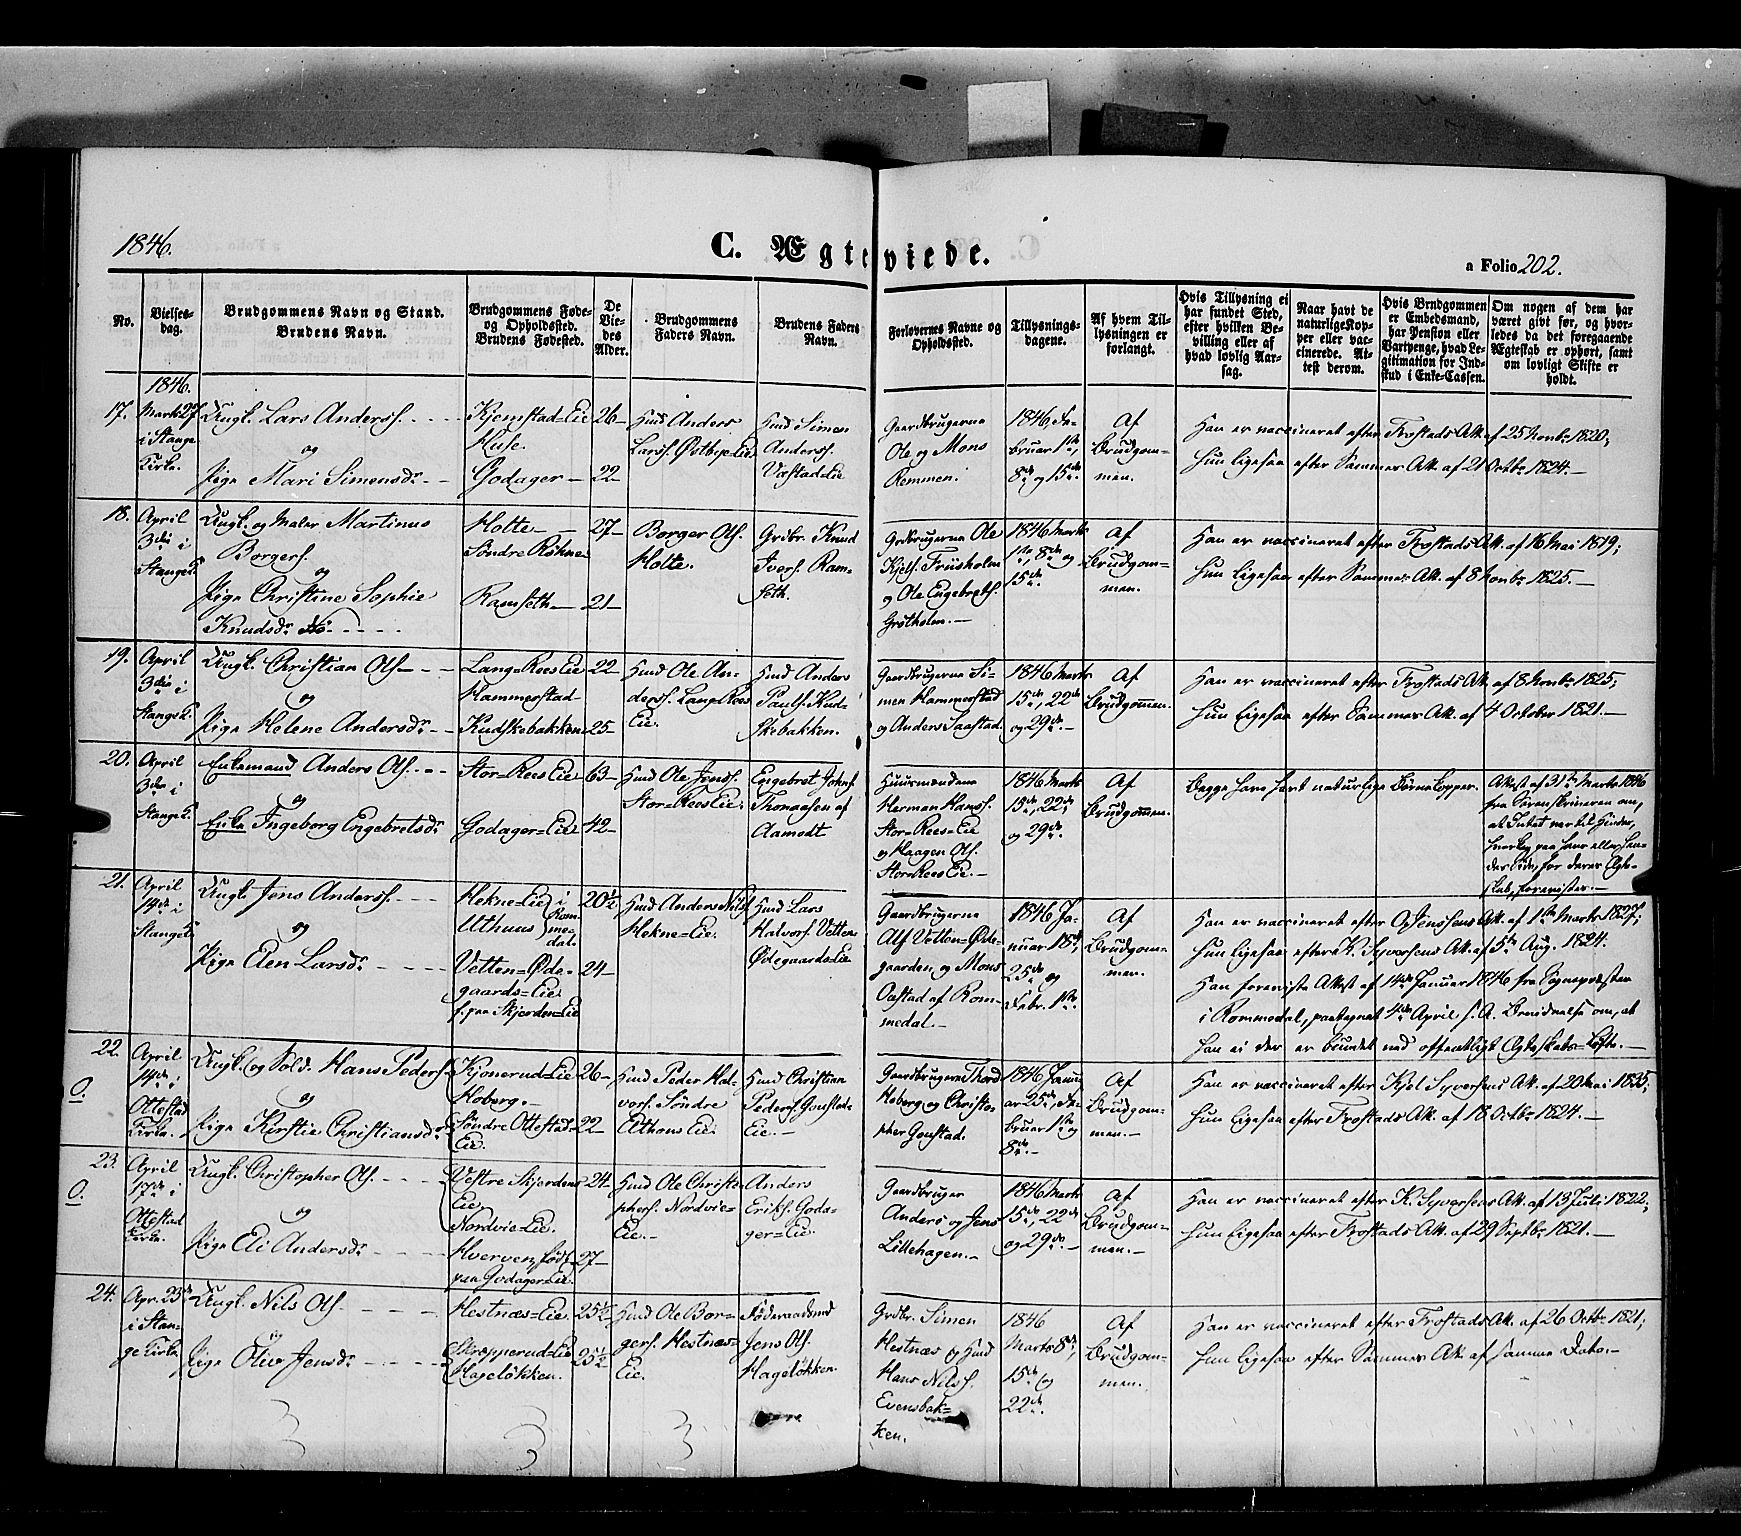 1846.
C. Ægteviede.
a Folio 202.
No.
Vielses-
dag.
Brudgommens Navn og Stand.
Brudens Navn.
Brudgommens Føde-
og Opholdssted.
Brudens Fødested.
De
Vie-
des
Alder.
Brudgommens
Faders Navn.
Brudens Faders
Navn.
Forlovernes Navne og
Opholdssted.
Tillysnings-
dagene.
Af hvem Til-
lysningen er
forlangt.
Hvis Tillysning ei
har fundet Sted,
efter hvilken Be-
villing eller af
hvad lovlig Aar-
sag.
Naar havt de
naturlige Kop-
per eller vac-
cinerede. At-
test derom.
Hvis Brudgommen
er Embedsmand,
har Pension eller
Vartpenge, hvad Le-
gitimation for Ind-
skud i Enke-Cassen.
Om nogen af dem har
været givt før, og hvor-
ledes da det foregaaende
Ægteskab er ophørt, samt
om lovligt Skifte er
holdt.
1846.
17.
Marts 27
i Stange
Kirke.
Ungk. Lars Anders.
og
Pige Mari Simensdr
Kjemstad=Eie
Huse.
Godager
26
22
Husmd Anders
Lars. Østbye=Eie
Husmd Simen
Anders.
Vastad Eie
Gaardbrugerne
Ole og Mons
Remmen.
1846, Fe-
bruar 1ste,
8de og 15de
Af
Brudgom-
men.
Han er vaccineret efter Frostads Att. af 25 Novbr 1820;
Hun ligesaa efter Sammes Att. af 21 Octbr 1824.
18.
April
3die i
Stange K.
Ungk. og Maler Martinus
Borgers.
og
Pige Christine Sophie
Knudsdr
Holte
Søndre Røhne
Ramseth
27
21
Borger Ols.
Holte.
Grdbr. Knud
Ivers. Ram-
seth.
Grdbrugerne Ole
Kjels. Friisholm
og Ole Engebrets.
Grøtholm.
1846 Marts
1ste, 8de og
15de
Af
Brudgom-
men.
Han er vaccineret efter Frostads Att. af 16 Mai 1819;
Hun ligesaa efter Sammes Att. af 8 Novbr 1825.
19.
April
3die i
Stange K.
Ungk. Christian Ols.
og
Pige Helene Andersdr
Lang=Rees Eie
Hammerstad
Kudskebakken
22
25
Husmd Ole An-
ders. Lang Rees
Eie.
Husmd Anders
Pauls. Kud-
skebakken.
Gaardbrugerne Si-
men Hammerstad
og Anders Saastad.
1846 Marts
15de, 22
og 29de.
Af
Brudgommen.
Han er vaccineret efter Frostads Att. af 8 Novbr 1825;
Hun ligesaa efter Sammes Att. af 4 October 1821.
20.
April
3die i
Stange K.
Enkemand Anders Ols.
og
Enke Ingeborg Engebretsdr
Stor=Rees Eie
Godager=Eie
63
42
Husmd Ole Jens.
Stor=Rees Eie.
Engebret Johns.
Thomassen af
Aamodt
Huusmændene
Herman Hans.
Stor=Rees=Eie
og Haagen Ols.
Stor=Rees Eie.
1846 Marts
15de, 22de
og 29de.
Af
Brudgommen.
Begge have havt naturlige Børnekopper.
Attest af 31te Marts 1846
fra Sorenskriveren om,
at Intet var til Hinder,
hverken paa hans eller hen-
des Side, for deres Ægte-
skab, forevistes.
21.
April
14de i
Stange K.
Ungk. Jens Anders.
og
Pige Elen Larsdr
Hekne=Eie i
Uthuus
Rom-
me-
dal.
Vetten=Øde-
gaards=Eie.
f. paa Skjerden=Eie
20½
24
Husmd Anders Nils.
Hekne=Eie.
Husmd Lars
Halvors. Vetten
Ødegaards=Eie
Gaardbrugerne
Alf Vetten=Øde-
gaarden, og Mons
Oustad af Rom-
medal.
1846 Ja-
nuar 18de,
25de og
Febr. 1ste.
Af
Brudgom-
men.
Han er vaccineret efter O. Jenssens Att. af 1ste Marts 1827;
Hun ligesaa efter K. Syversens Att. af 5te Aug. 1824.
Han foreviste Attest af 14de Januar 1846 fra Sognepræsten
i Rommedal, paategnet 4de April s. A. Bevidnelse om, at
han ei der er bundet ved offentligt Ægteskabs=Løfte.
22.
O.
April
14de i
Ottestad
Kirke.
Ungk. og Sold. Hans Peders.
og
Pige Kirstie Christiansdr
Kjonerud=Eie
Hoberg.
Søndre Ottestad
Eie.
26
22
Husmd Peder Hal-
vors. Søndre
Althons Eie.
Husmd Christian
Peders. Gonstad-
Eie.
Gaardbrugerne Thord
Hoberg og Christo-
pher Gonstad.
1846 Janu-
ar 25de, Fe-
bruar 1ste og
8de.
Af
Brudgom-
men.
Han er vaccineret efter Kjel Syversens Att. af 20 Mai 1835;
Hun ligesaa efter Frostads Att. af 18 Octbr 1824.
23.
O.
April
17de i
Ottestad
Kirke.
Ungk. Christopher Ols.
og
Pige Eli Andersdr
Vestre Skjerden
Eie,
Nordvie=Eie.
Hverven, født
paa Godager=Eie.
24
27
Husmd Ole Christo-
phers. Nordvie=
Eie.
Anders
Eriks. Goda-
ger=Eie.
Gaardbruger
Anders og Jens
Lillehagen.
1846 Marts
15de, 22de
og 29de.
Af
Brudgom-
men.
Han er vaccineret efter K. Syversens Att. af 13 Juli 1822;
Hun ligesaa efter Frostads Att. af 29 Septbr 1821.
24.
Apr. 23de
i Stan-
ge Kirke
Ungk. Nils Ols.
og
Pige Olive Jensdr
Hestnæs=Eie
Skrepperud=Eie
Hageløkken.
25½
25½
Husmd Ole Bor-
gers. Hestnæs=
Eie.
Føderaadsmd
Jens Ols.
Hageløkken
Grdbr. Simen
Hestnæs og Husmd
Hans Nils.
Evensbak-
ken.
1846
Marts 8de,
15de og
22de.
Af
Brudgom-
men.
Han er vaccineret efter Frostads Att. af 26 Octbr 1821;
Hun ligesaa efter Sammes Att. af samme Dato.
3
3
3